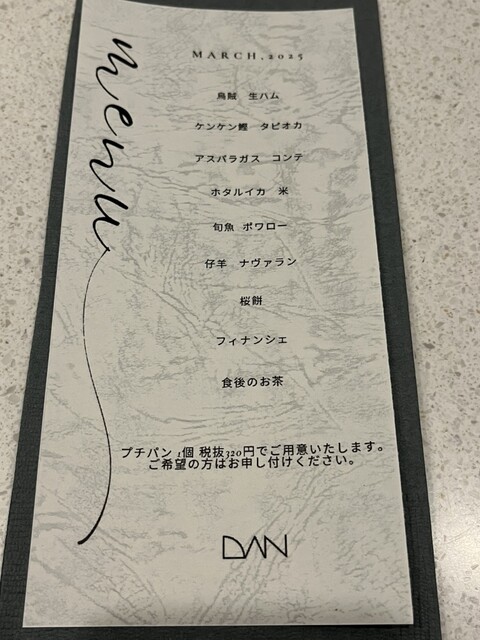 menu
MARCH,2025
烏賊 生ハム
ケンケン鰹 タピオカ
アスパラガス コンテ
ホタルイカ 米
旬魚 ポワロー
仔羊 ナヴァラン
桜餅
フィナンシェ
食後のお茶
プチパン 1個 税抜320円でご用意いたします。
ご希望の方はお申し付けください。
DAN